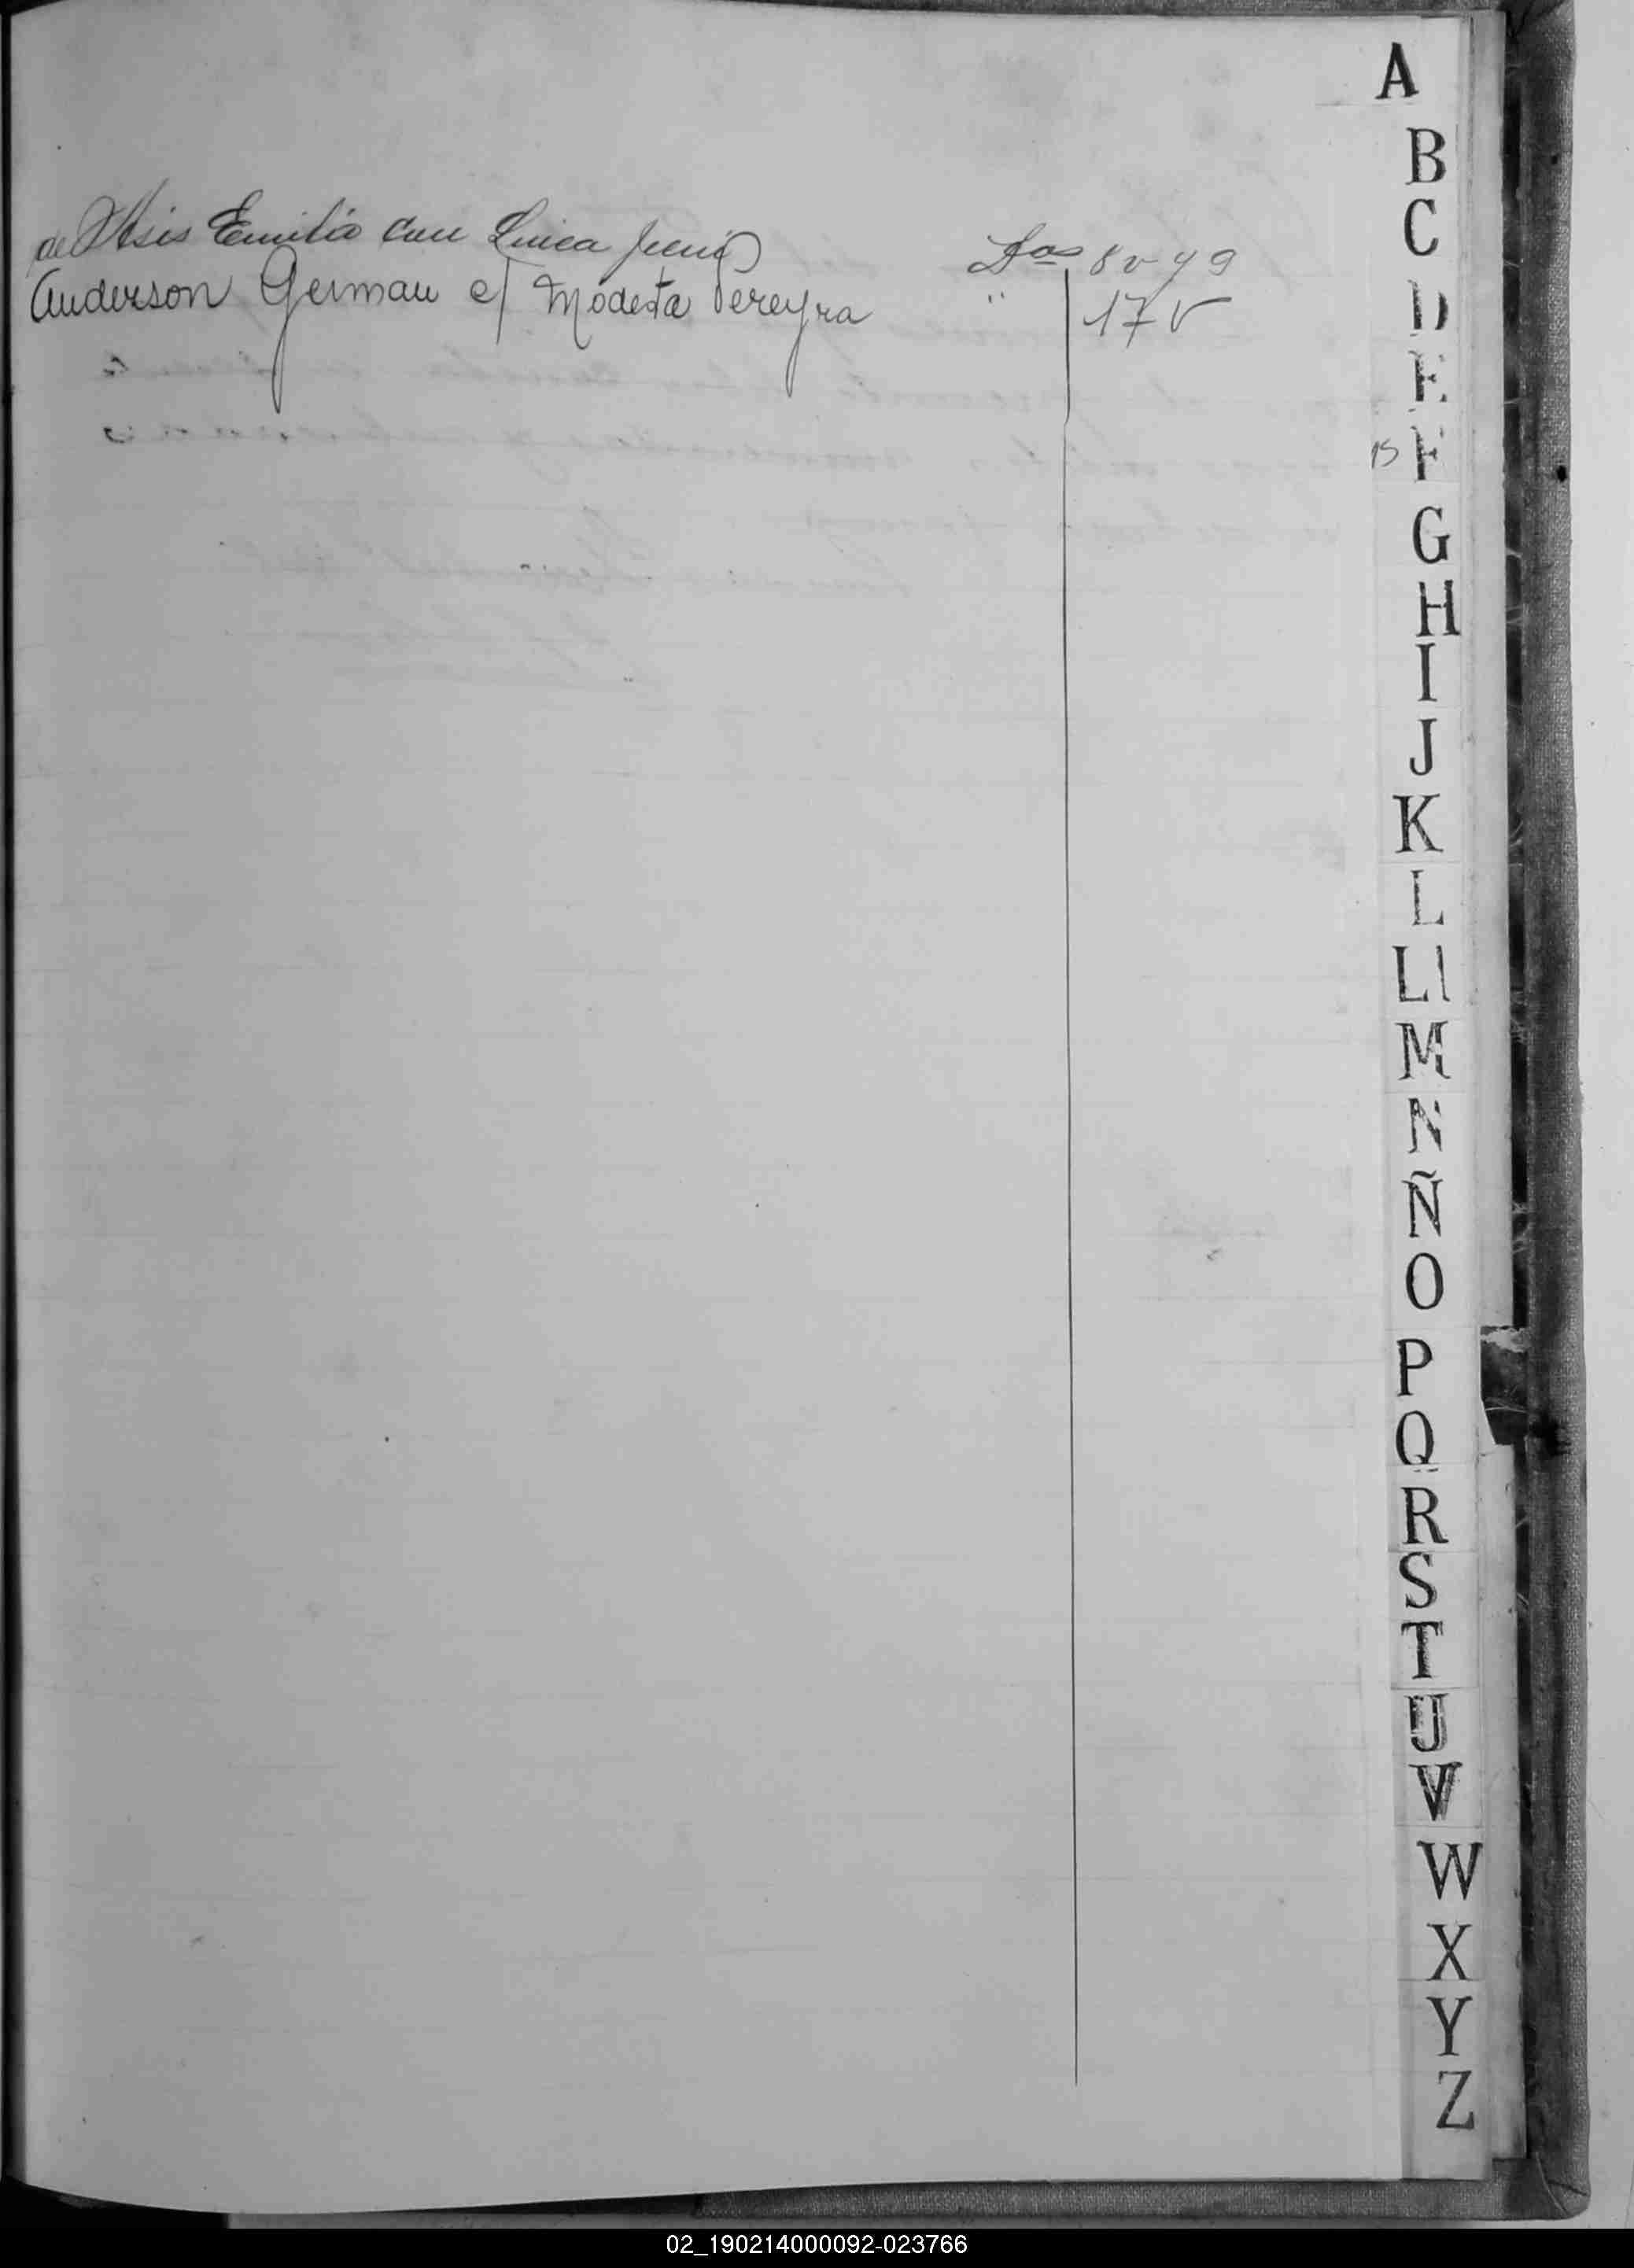 de Asis Emilio con Luisa
Fos 8v y 9
Anderson German c/ Modesta Pereyra
" 17 v
15
A
B
C
D
E
F
G
H
I
J
K
L
Ll
M
N
Ñ
O
P
Q
R
S
T
U
V
W
X
Y
Z
02_190214000092-023766